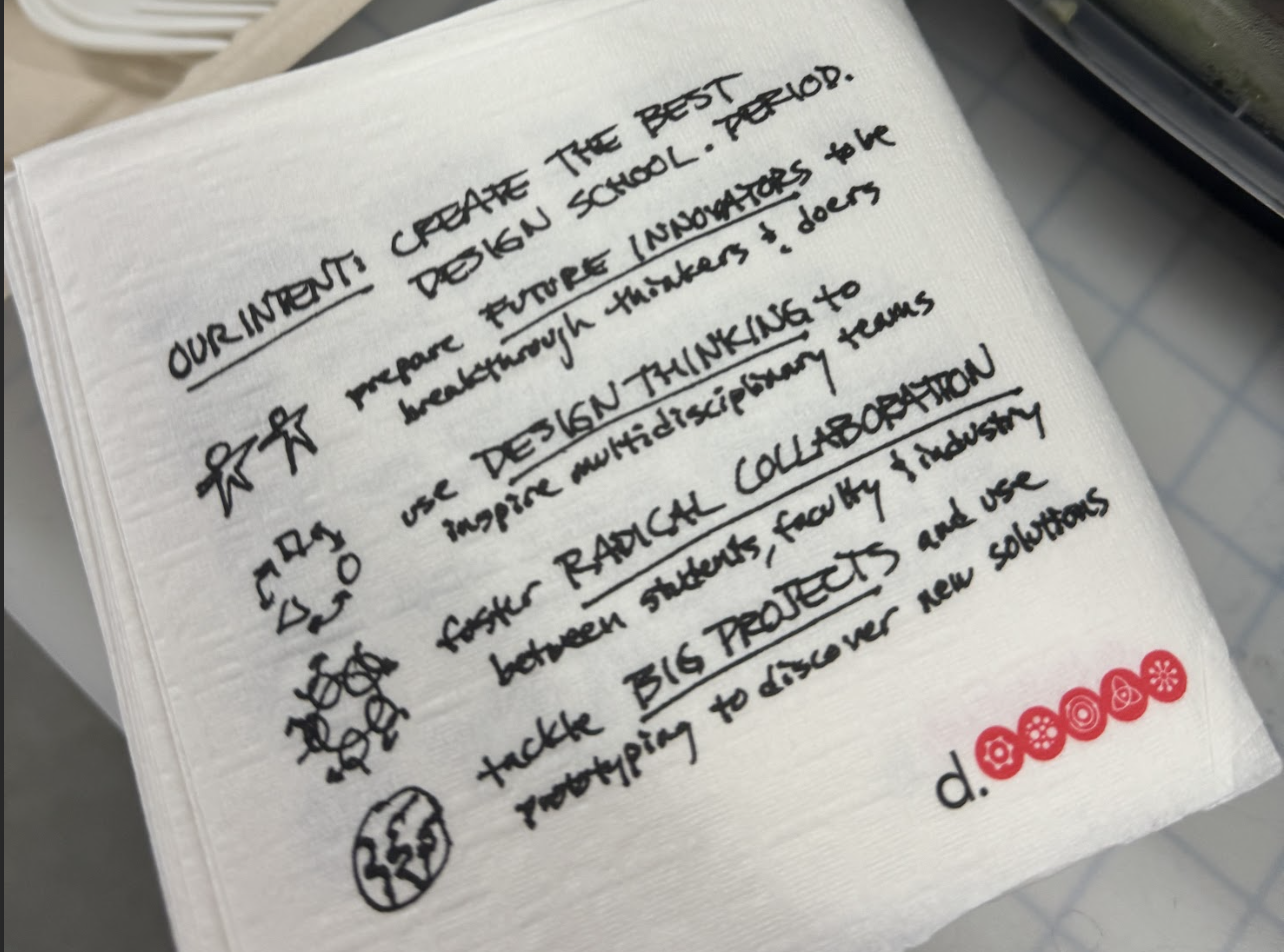 OUR INTENT: CREATE THE BEST
DESIGN SCHOOL. PERIOD.
prepare FUTURE INNOVATORS to be
breakthrough thinkers & doers
use DESIGN THINKING to
inspire multidisciplinary teams
foster RADICAL COLLABORATION
between students, faculty & industry
tackle BIG PROJECTS and use
prototyping to discover new solutions
d.